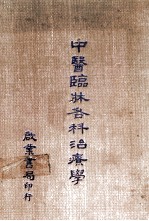 中醫臨牀各科治療學
啟業書局印行